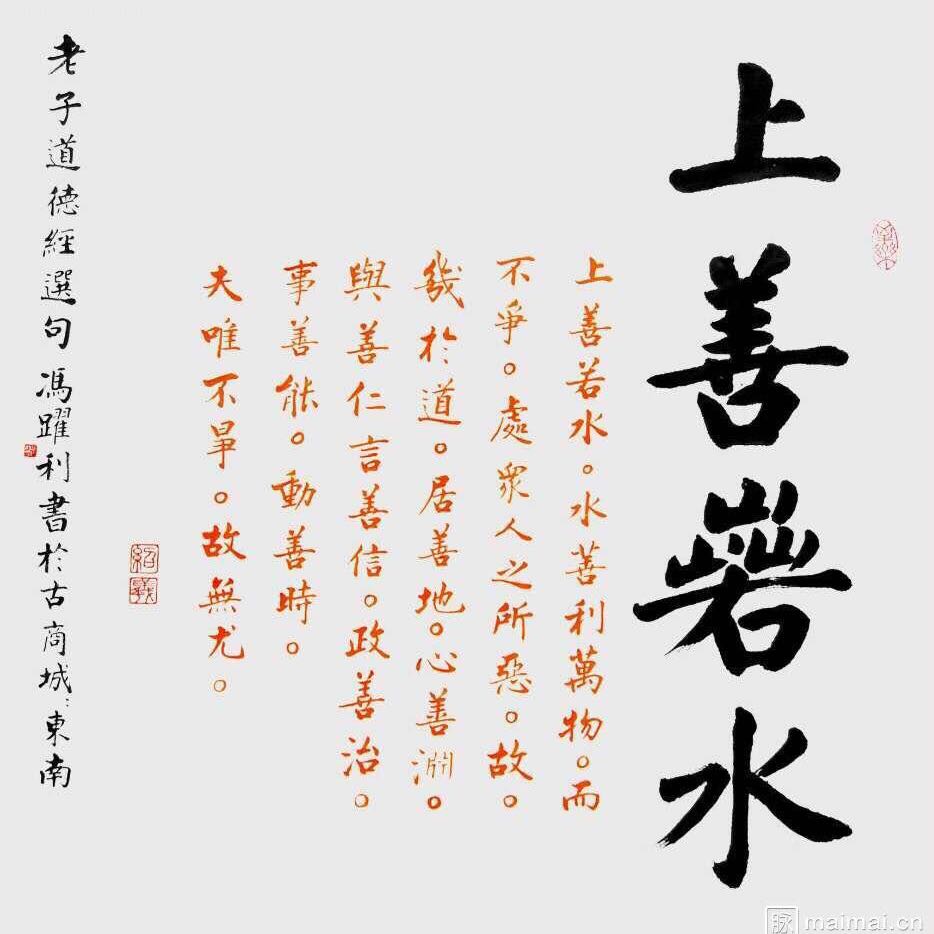 上善若水
上善若水。水善利萬物。而
不爭。處衆人之所惡。故。
幾於道。居善地。心善淵。
與善仁言善信。政善治。
事善能。動善時。
夫唯不爭。故無尤。
老子道德經選句 馮躍利書於古商城〻東南
紹義
脉 maimai.cn